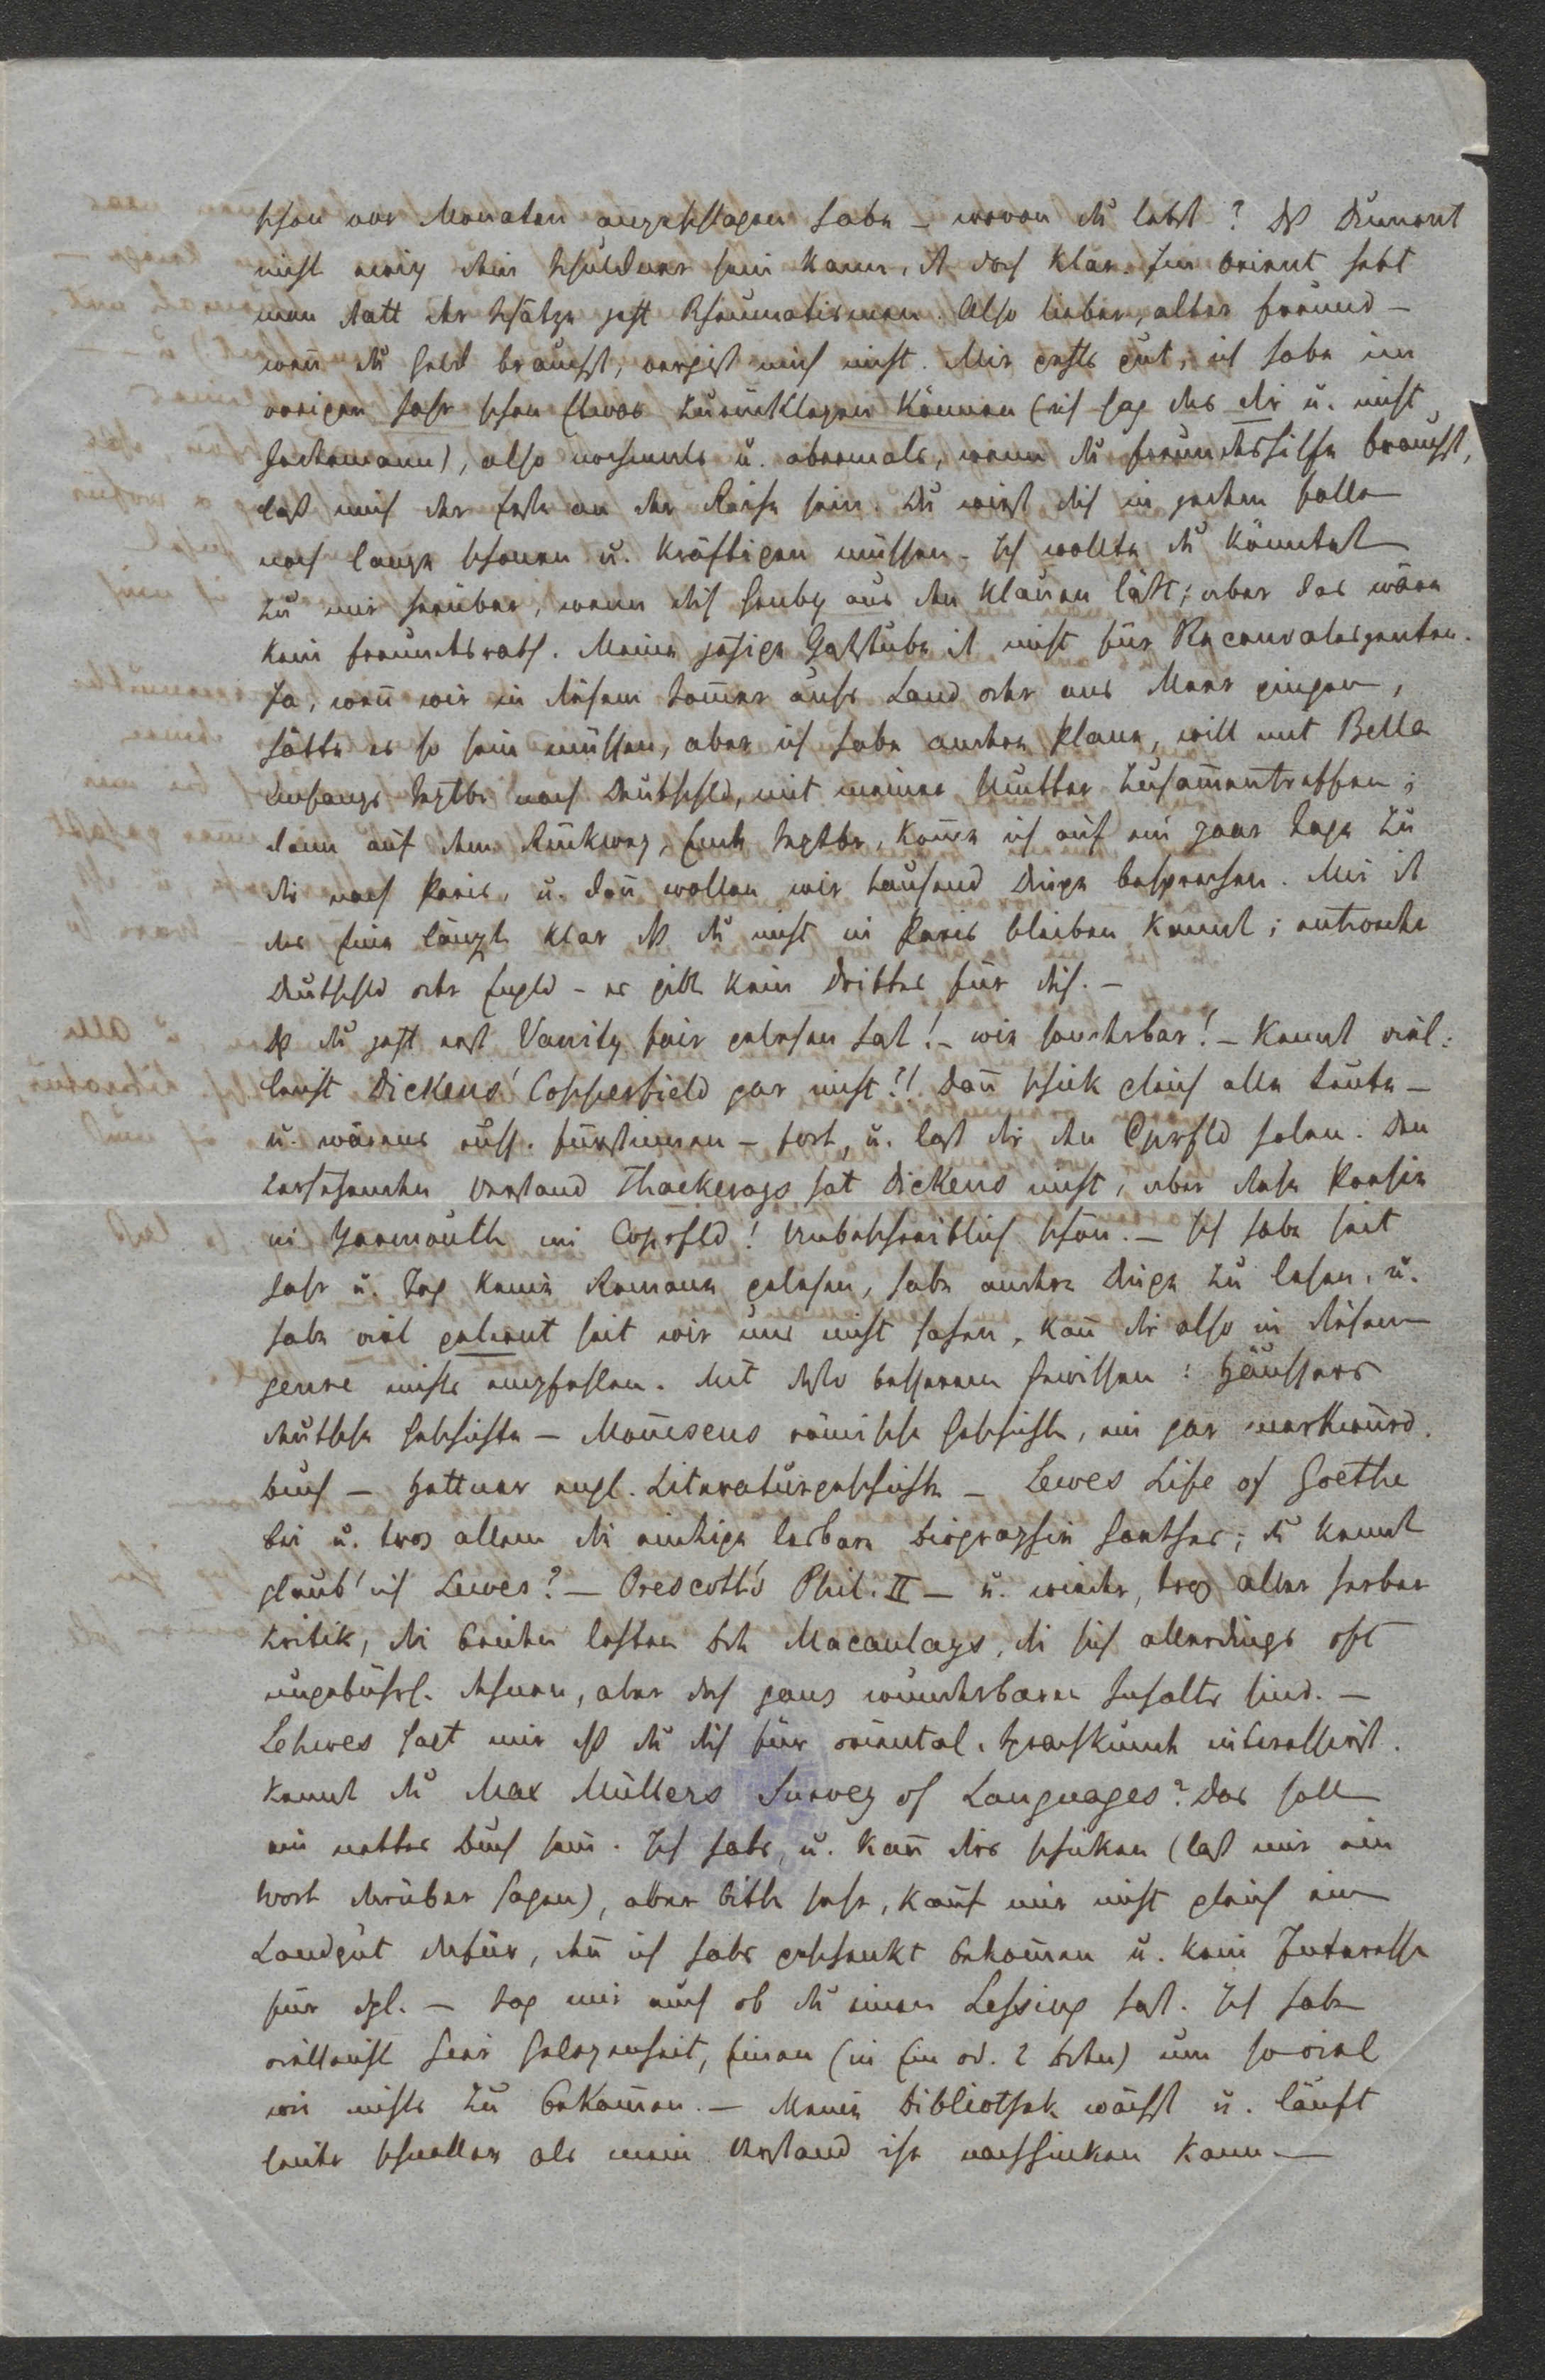 schon vor Monaten angeschlagen habe – wovon du lebst? Dß Dumont
nicht ewig dein Schuldner sein kann, ist doch klar. Im Orient hebt
man statt der Schätze jetzt Rheumatismen. Also lieber, alter Freund –
wenn̄ du Geld brauchst, vergiß mich nicht. Mir gehts gut, ich habe im
vorigen Jahr schon Etwas zurücklegen können (ich sag das dir u. nicht
Jedermann), also nochmals u. abermals, wenn du Freundeshilfe brauchst,
laß mich der Erste an der Reihe sein. Du wirst dich in jedem Falle
noch lange schonen u. kräftigen müssen. Ich wollte du könntest
zu mir herüber, wenn dich aus den Klauen läßt; aber das wäre
kein Freundesrath. Meine jetzige Gaststube ist nicht für Reconvalescenten.
Ja, wen̄ wir in diesem Som̄er aufs Land oder ans Meer gingen,
hätte es so sein müssen, aber ich habe andere Plane, will mit Bella
Anfangs Septbr nach Deutschld, mit meiner Mutter zusam̄entreffen;
dann auf dem Rückweg, Ende Septbr, kom̄e ich auf ein paar Tage zu
dir nach Paris, u. dan̄ wollen wir tausend Dinge besprechen. Mir ist
das Eine längst klar dß du nicht in Paris bleiben kannst; entweder
Deutschld oder Engld – es gibt kein Drittes für dich. –
Dß du jetzt erst Vanity fair gelesen hast! – wie sonderbar! – Kennst viel-
leicht Dickens' Copperfield gar nicht?!! Dan̄ schick gleich alle Leute –
u. wärens russ. Fürstinnen – fort, u. laß dir den Cprfld holen. Den
zersetzenden Verstand Thackerays hat Dickens nicht, aber diese Poesie
in Yarmouth im Coprfld! Unbeschreiblich schön. – Ich habe seit
Jahr u. Tag keine Romane gelesen, habe andere Dinge zu lesen, u.
habe viel gelernt seit wir uns nicht sahen, kan̄ dir also in diesem
genre nichts empfehlen. Mit desto besserem Gewissen: Häussers
deutsche Geschichte – Mom̄sens römische Geschichte, ein gar merkwürd.
Buch – Hettner engl. Literaturgeschichte – Lewes Life of Goethe
bei u. trotz allem die einzige lesbare Biographie Goethes; du kennst
glaub' ich Lewes? – Prescott's Phil. II – u. wieder, trotz aller herber
Kritik, die beiden letzten Bde Macaulays, die sich allerdings oft
ungebührl. dehnen, aber doch ganz wunderbaren Inhalts sind. –
Lehwes sagt mir dß du dich für oriental. Sprachkunde interessirst.
Kennst du Max Müllers Survey of Languages? Das soll
ein nettes Buch sein. Ich habs, u. kan̄ dirs schicken (laß mir ein
Wort darüber sagen), aber bitte sehr, kauf mir nicht gleich ein
Landgut dafür, den̄ ich habs geschenkt bekom̄en u. kein Interesse
für dgl. – Sag mir auch ob du einen Lessing hast. Ich habe
vielleicht hier Gelegenheit, Einen (in Ein od. 2 Bden) um so viel
wie nichts zu bekom̄en. – Meine Bibliothek wächst u. läuft
leider schneller als mein Verstand ihr nachhinken kann. –